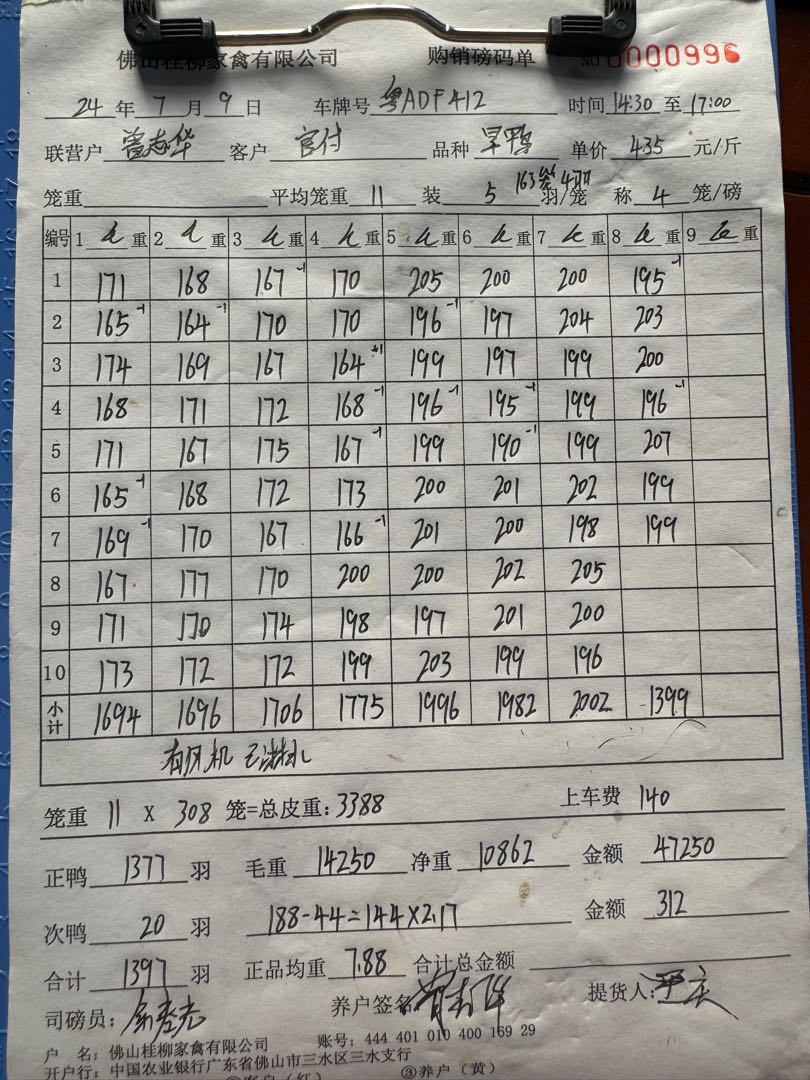 佛山桂柳家禽有限公司 购销磅码单 NO 0000996
24 年 7 月 9 日 车牌号 粤ADF412 时间 14:30 至 17:00
联营户 曾志华 客户 官付 品种 旱鸭 单价 4.35 元/斤
163笼4羽
笼重 平均笼重 11 装 5 羽/笼 称 4 笼/磅
编号 1 重 2 重 3 重 4 重 5 重 6 重 7 重 8 重 9 重
1 171 168 167 -1 170 205 200 200 195 -1
2 165 -1 164 -1 170 170 196 -1 197 204 203
3 174 169 167 164 199 197 199 200
4 168 171 172 168 -1 196 -1 195 -1 199 196 -1
5 171 167 175 167 -1 199 190 -1 199 207
6 165 -1 168 172 173 200 201 202 199
7 169 -1 170 167 166 -1 201 200 198 199
8 167 177 170 200 200 202 205
9 171 170 174 198 197 201 200
10 173 172 172 199 203 199 196
小计 1694 1696 1706 1775 1996 1982 2002 1399
有风机
笼重 11 X 308 笼=总皮重: 3388 上车费 140
正鸭 1377 羽 毛重 14250 净重 10862 金额 47250
次鸭 20 羽 188-44=144×2.17 金额 312
合计 1397 羽 正品均重 7.88 合计总金额
司磅员: 养户签名 提货人:
户 名: 佛山桂柳家禽有限公司 账号: 444 401 010 400 169 29
开户行: 中国农业银行广东省佛山市三水区三水支行
②客户(红) ③养户(黄)